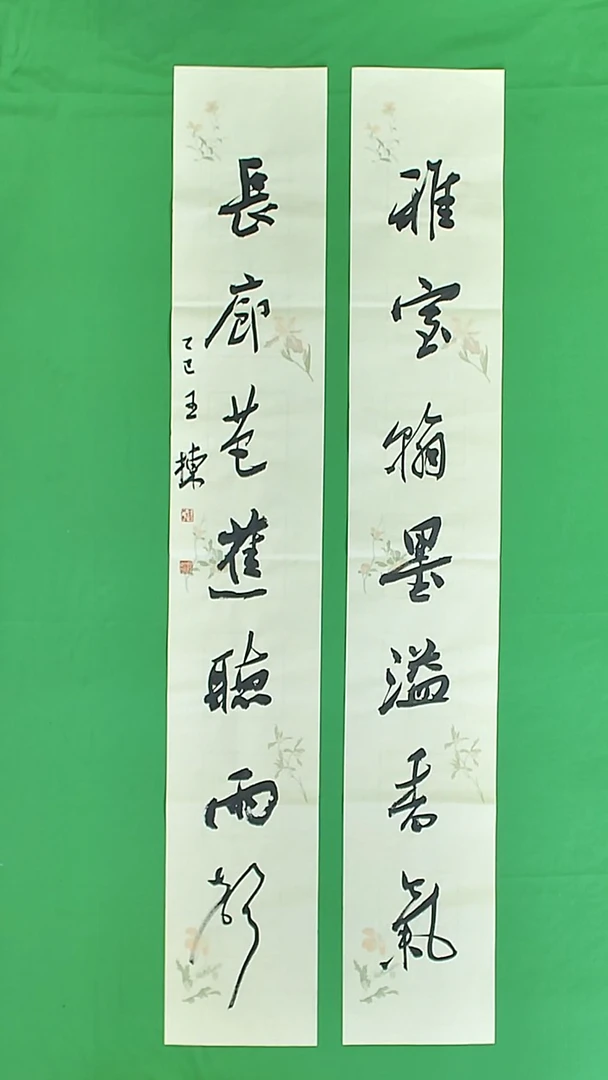 雅室翰墨溢香氣
長廊芭蕉聽雨聲
乙巳王揀